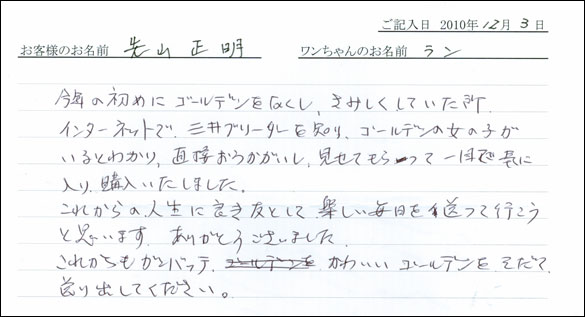 ご記入日 2010年12月3日
お客様のお名前 先山正明 ワンちゃんのお名前 ラン
今年の初めにゴールデンを亡くし、さみしくしていた所
インターネットで、三井ブリーダーを知り、ゴールデンの女の子が
いるとわかり、直接おうかがいし、見せてもらって一目で気に
入り、購入いたしました。
これからの人生に良き友として 楽しい毎日を送って行こう
と思います。ありがとうございました。
これからもガンバッテ、かわいいゴールデンをそだて、
送り出してください。